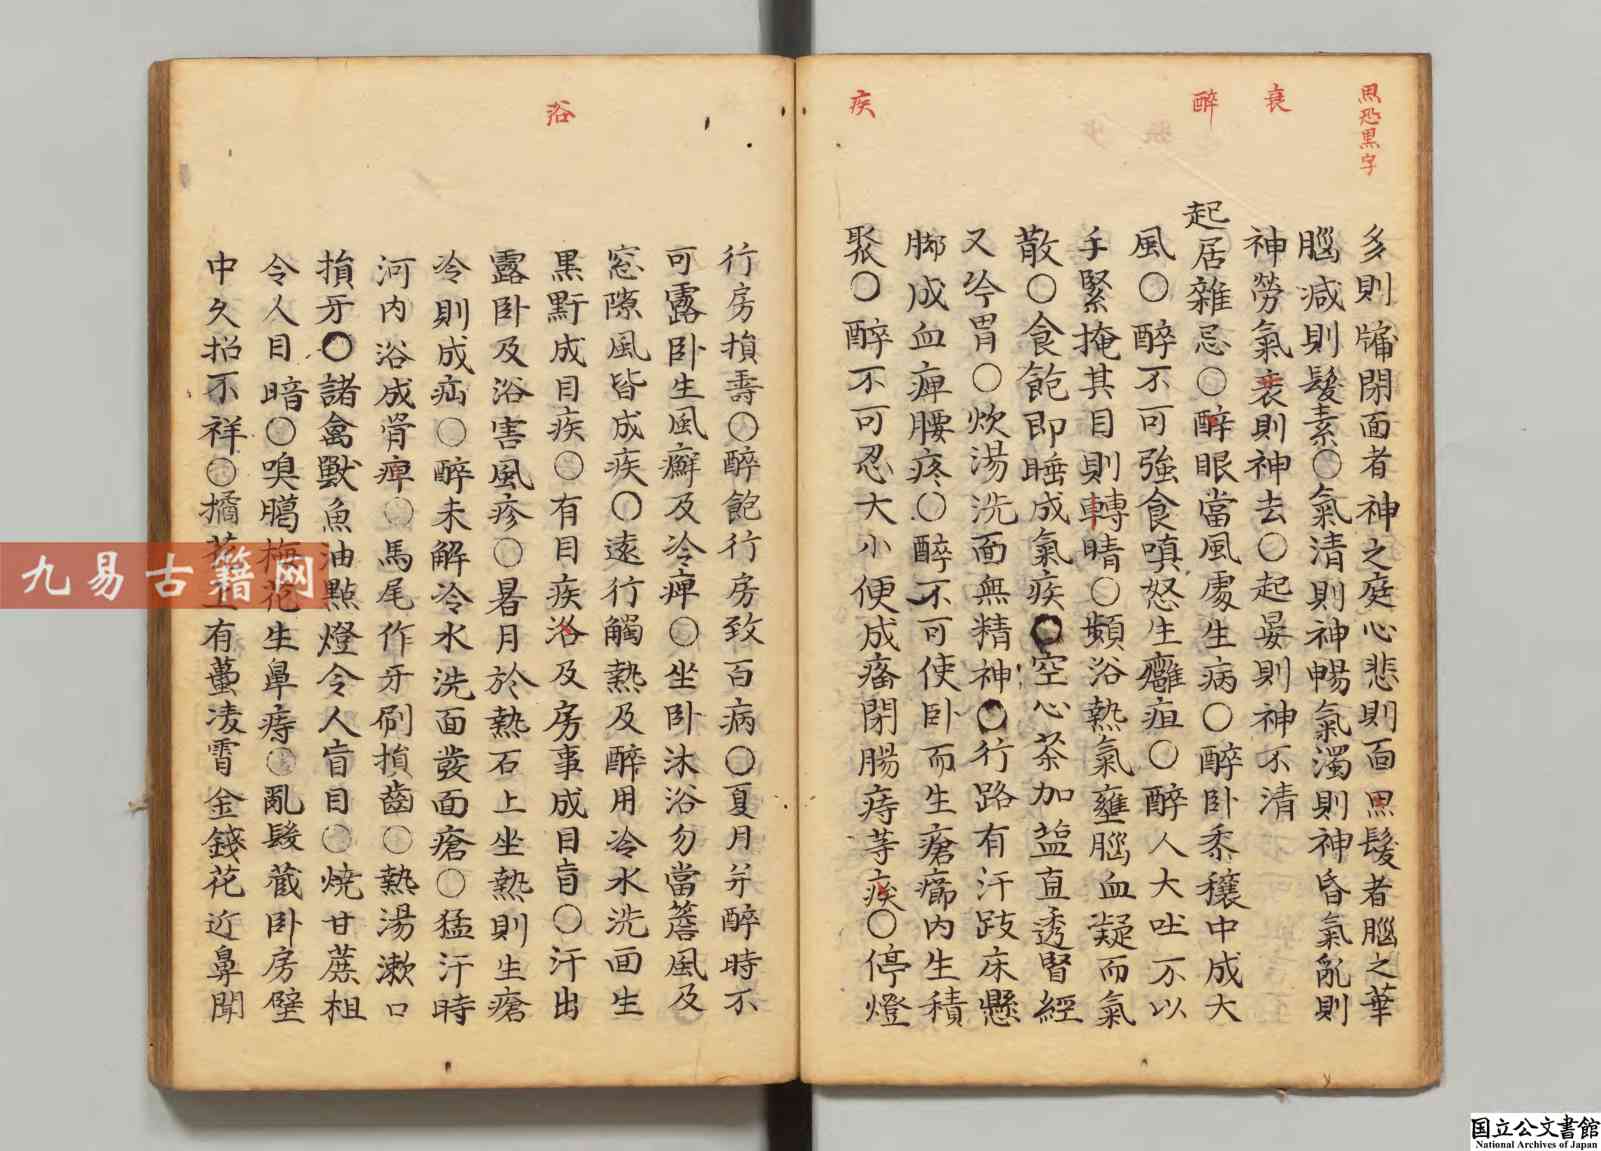 思恐黒字
衰
醉
疾
多則牖閉面者神之庭心悲則面黒髮者腦之華
腦減則髮素〇氣清則神暢氣濁則神昏氣亂則
神勞氣衰則神去〇起晏則神不清
起居雜忌〇醉眼當風處生病〇醉卧黍穰中成大
風〇醉不可強食嗔怒生癰疽〇醉人大吐不以
手緊掩其目則轉晴〇頻浴熱氣壅腦血凝而氣
散〇食飽即睡成氣疾〇空心茶加鹽直透腎經
又冷胃〇炊湯洗面無精神〇行路有汗跂床懸
脚成血痺腰疼〇醉不可使卧而生瘡癤内生積
聚〇醉不可忍大小便成癃閉腸痔等疾〇停燈
浴
行房損壽〇醉飽行房致百病〇夏月并醉時不
可露卧生風癬及冷痺〇坐卧沐浴勿當簷風及
窓隙風皆成疾〇遠行觸熱及醉用冷水洗面生
黒䵟成目疾〇有目疾浴及房事成目盲〇汗出
露卧及浴害風疹〇暑月於熱石上坐熱則生瘡
冷則成疝〇醉未解冷水洗面發面瘡〇猛汗時
河内浴成骨痺〇馬尾作牙刷損齒〇熱湯漱口
損牙〇諸禽獸魚油點燈令人盲目〇燒甘蔗柤
令人目暗〇嗅臈梅花生鼻痔〇亂髮藏卧房壁
中久招不祥〇橘花上有蠆凌霄金錢花近鼻聞
九易古籍网
国立公文書館
National Archives of Japan